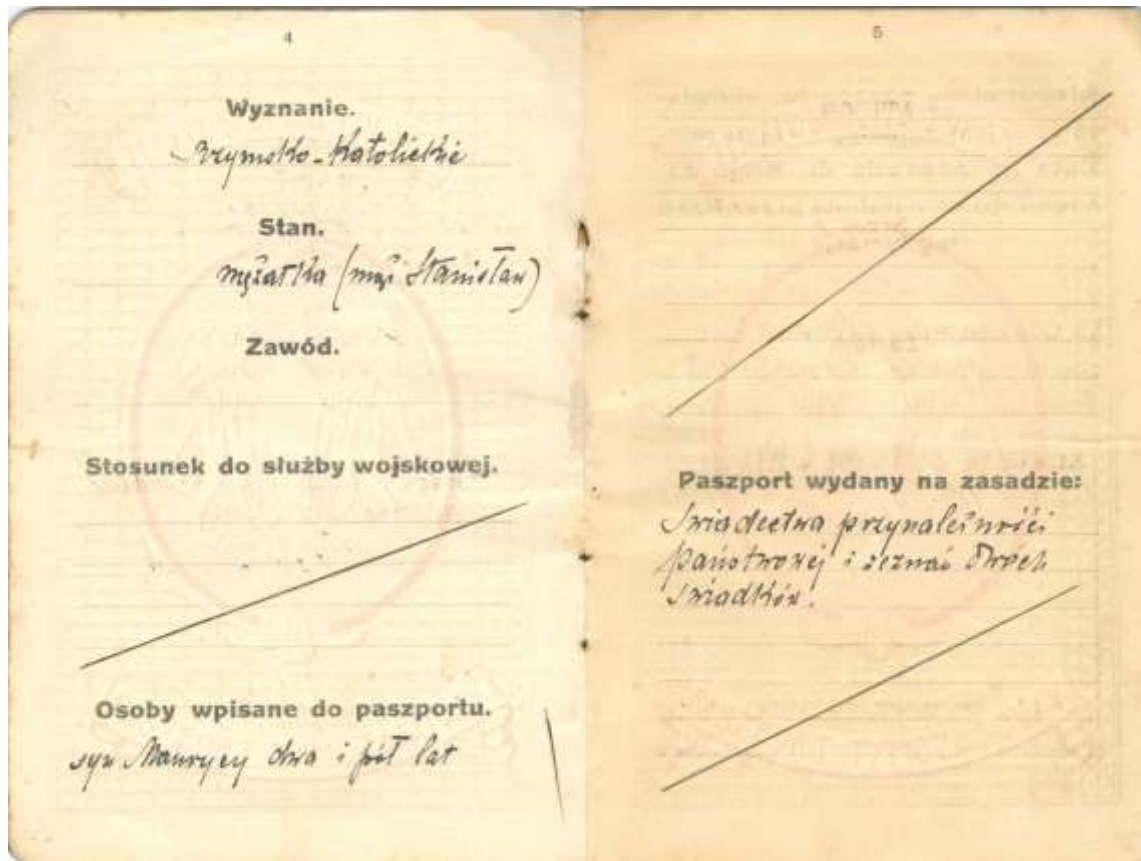 4
Wyznanie.
rzymsko-katolickie
Stan.
mężatka (mąż Stanisław)
Zawód.
Stosunek do służby wojskowej.
Osoby wpisane do paszportu.
syn Maurycy dwa i pół lat
5
Paszport wydany na zasadzie:
Świadectwa przynależności
państwowej i zeznań dwóch
świadków.